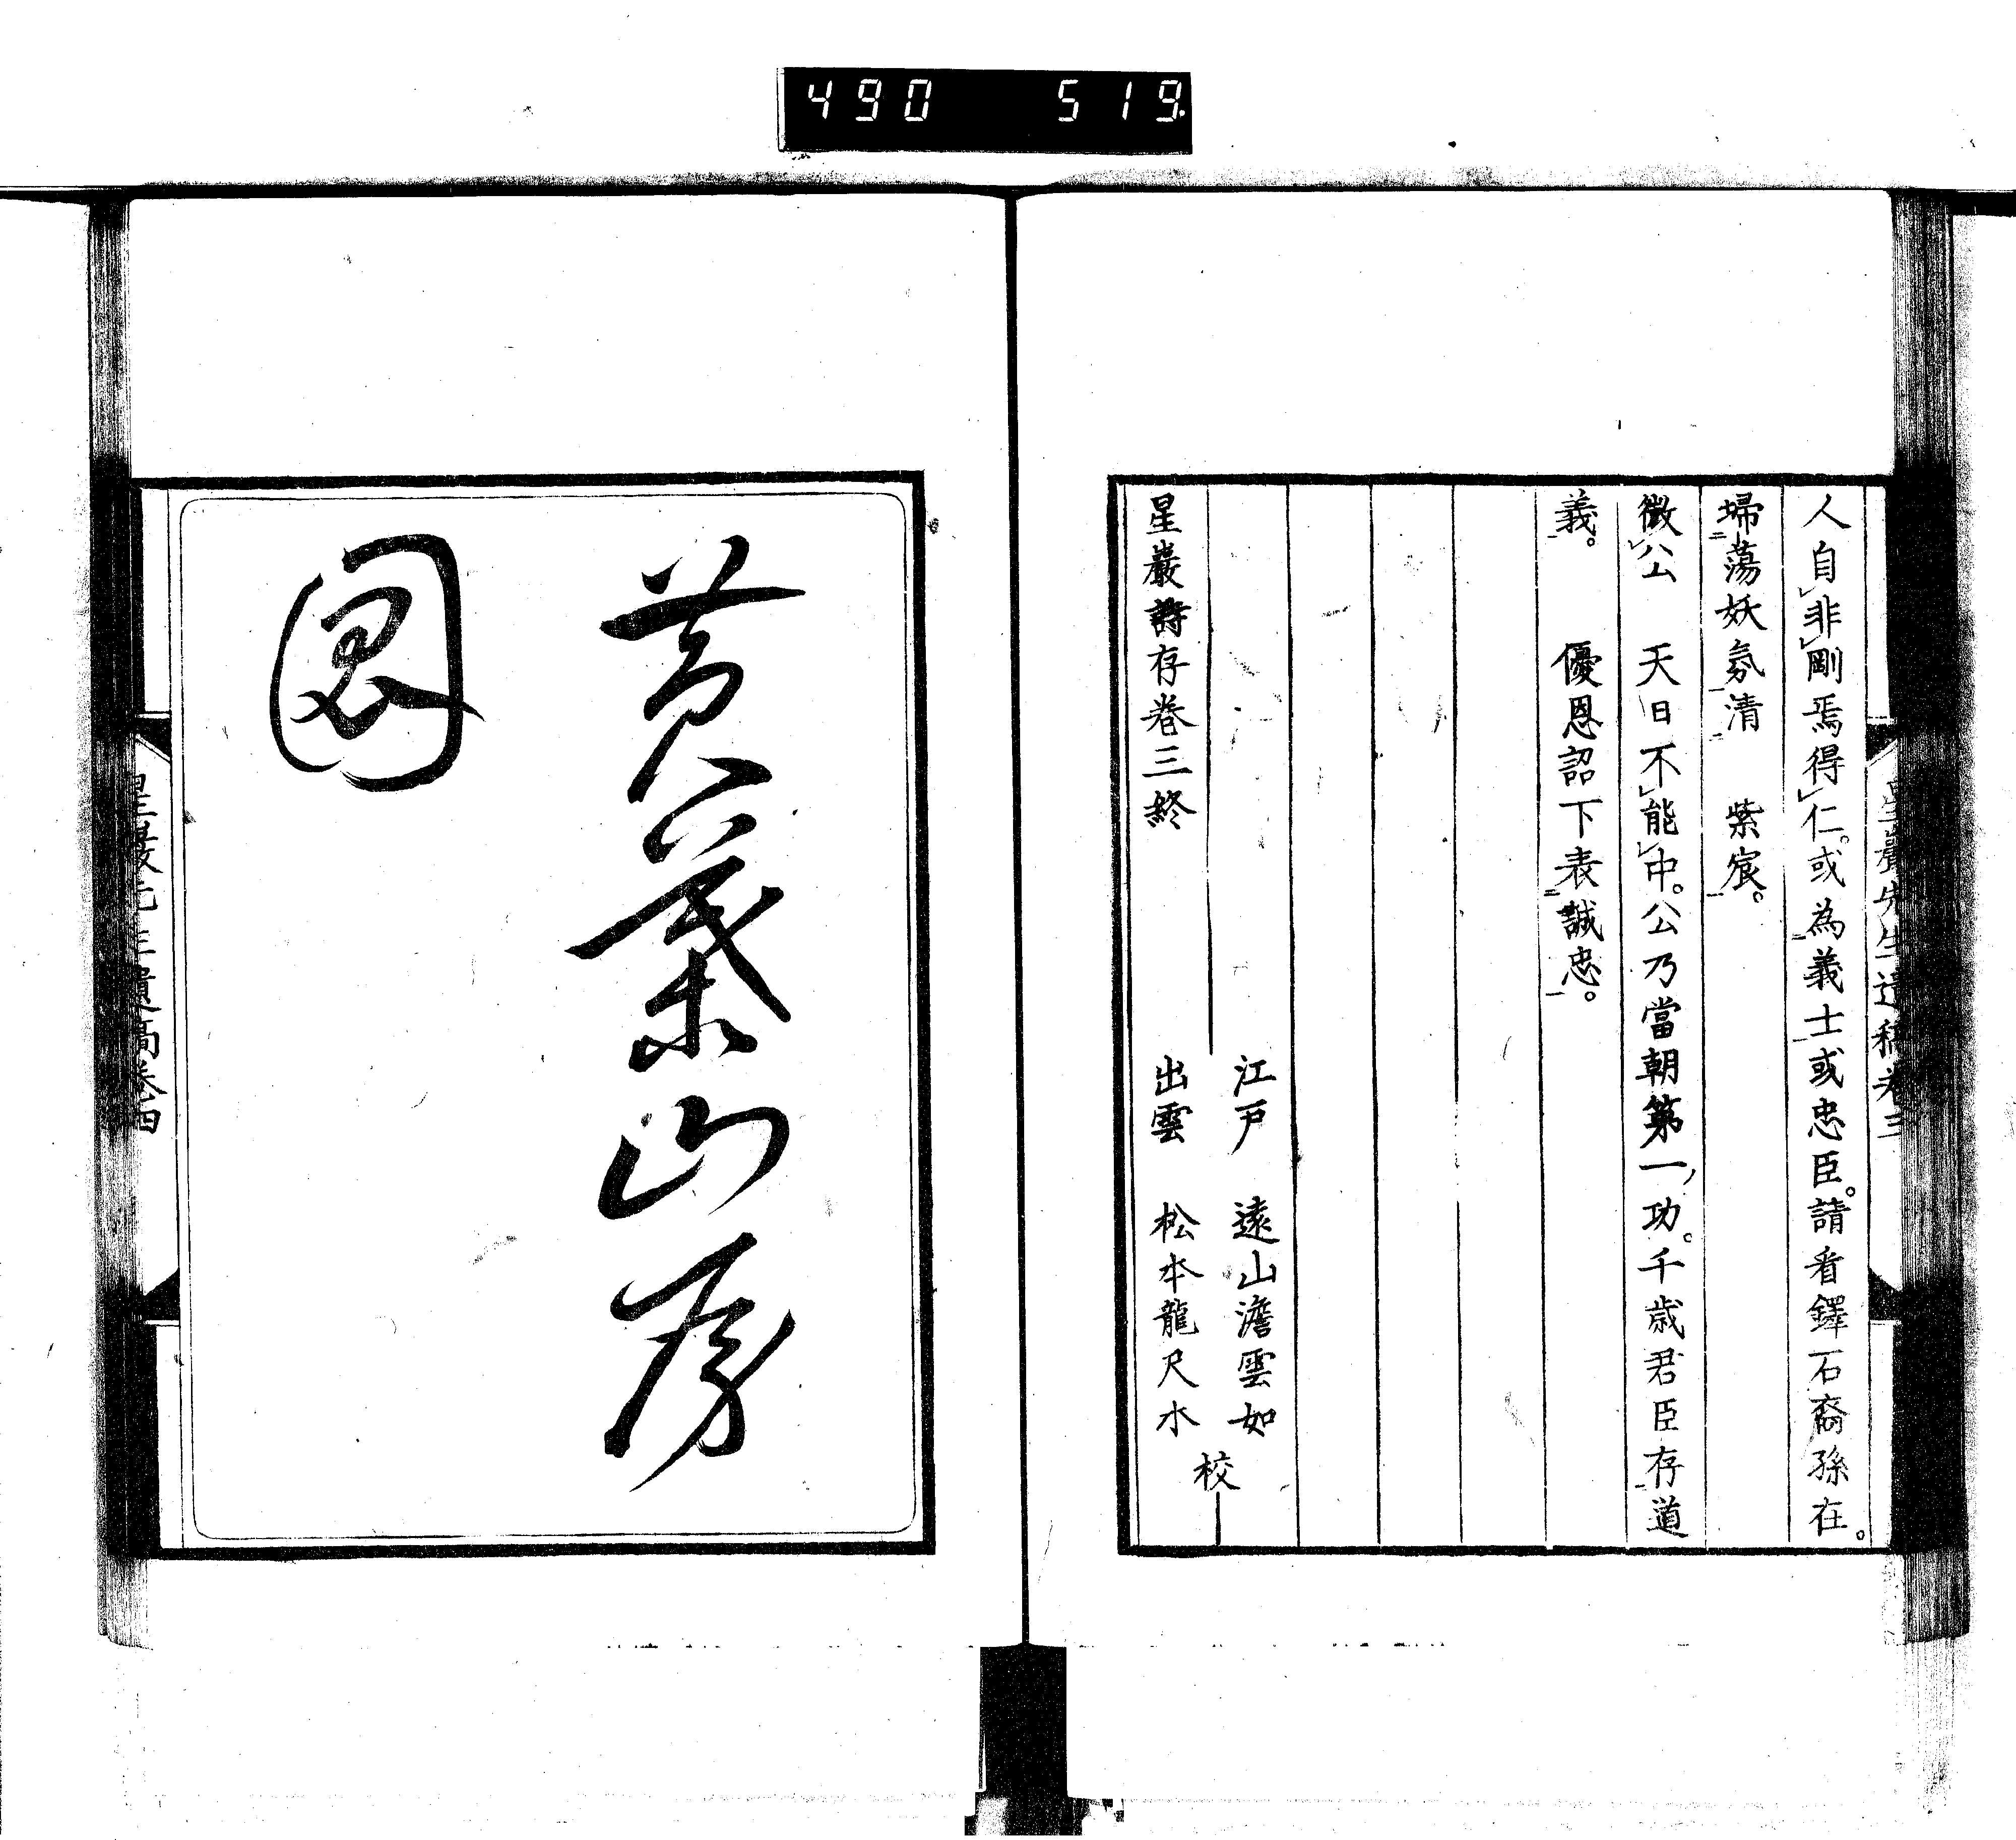 490 519
星巖先生遺稿卷三
人自非剛焉得仁。或為義士或忠臣。請看鐸石裔孫在。
埽蕩妖氛清　紫宸。
微公　天日不能中。公乃當朝第一功。千歳君臣存道
義。　優恩詔下表誠忠。
江戶　遠山澹雲如
出雲　松本龍尺水
校
星巖詩存卷三終
黃葉山房
圖
星巖先生遺稿卷四